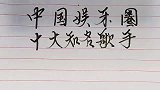 中国娱乐圈
十大知名歌手